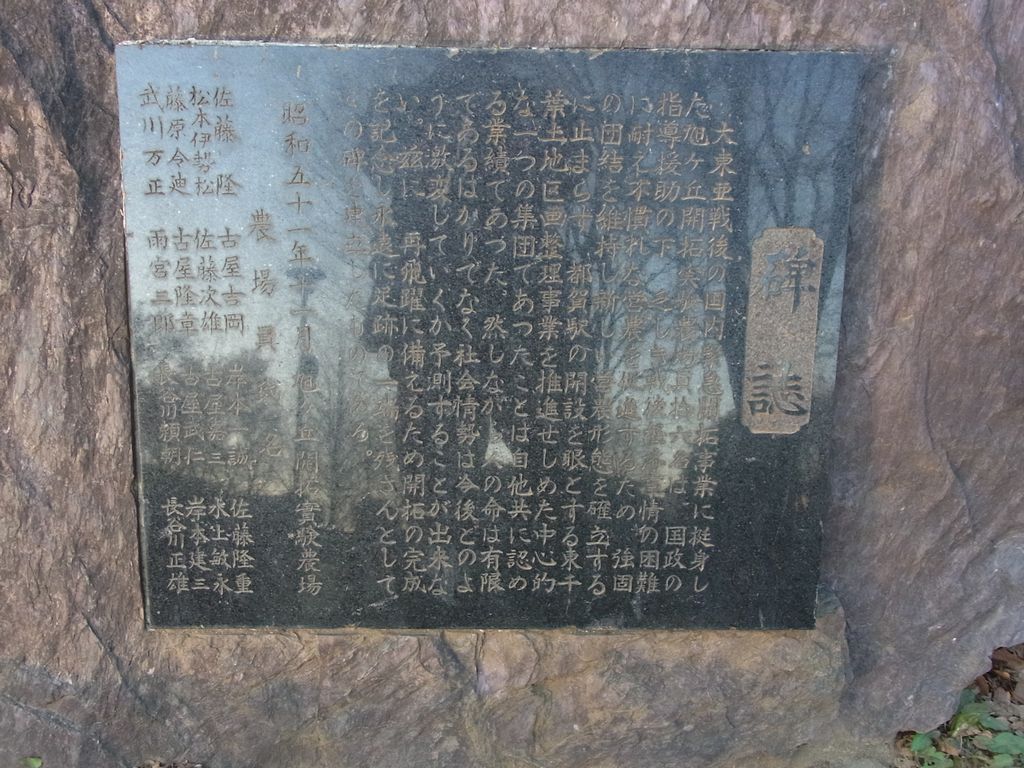 碑誌
大東亜戦後の国内緊急開拓事業に挺身し
た旭ヶ丘開拓実験農場員拾六名は、国政の
指導援助の下、乏しき戦後 情の困難
に耐え不慣れな営農を促進するため、強固
の団結を維持し新しい営農形態を確立する
に止まらず、都賀駅の開設を眼とする東千
葉土地区画整理事業を推進せしめた中心的
な一つの集団であつたことは自他共に認め
る業績であつた。然しながら人の命は有限
であるばかりでなく社会情勢は今後どのよ
うに激変していくか予測することが出来な
い。茲に、再飛躍に備えるため開拓の完成
を記念し永遠に足跡の一端を残さんとして
この碑を建立したものである。
昭和五十一年十一月 旭ヶ丘開拓實験農場
農場員氏名
佐藤隆 古屋吉岡 岸本一誠 佐藤隆重
松本伊勢松 佐藤次雄 古屋嘉三 水上敏永
藤原今迪 古屋隆章 古屋武仁 岸本建三
武川万正 雨宮三郎 長谷川頼朝 長谷川正雄